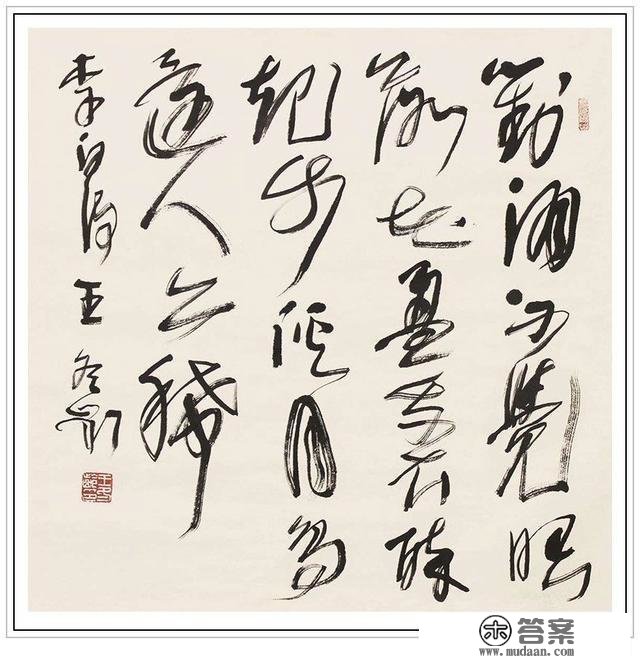 對酒不覺暝
落花盈我衣醉
起步溪月鳥
還人亦稀
李白詩 王冬齡
答案
www.mudaan.com